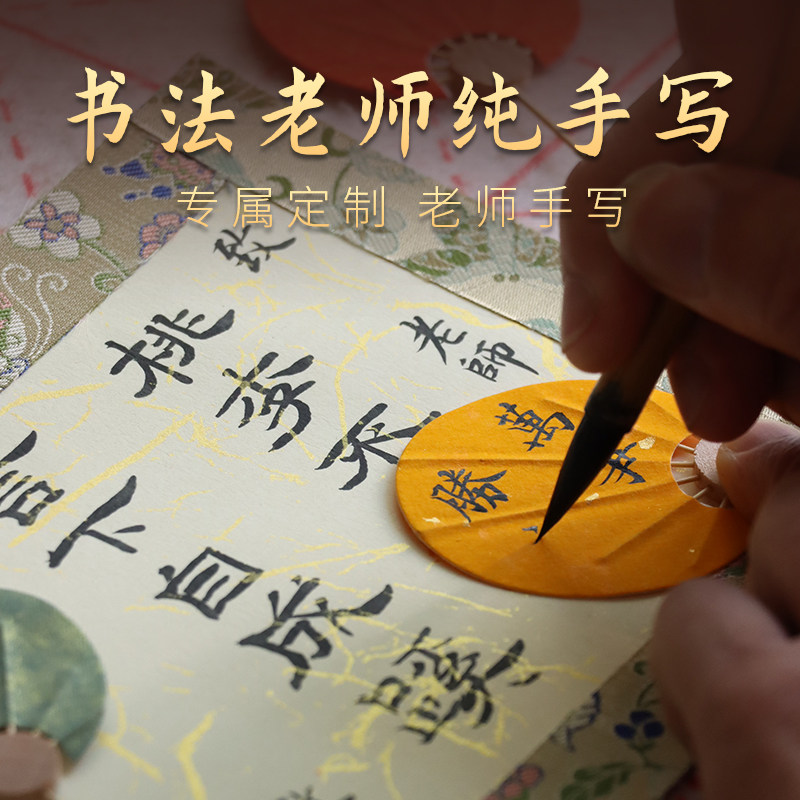 书法老师纯手写
专属定制 老师手写
致 老師
桃李不
言下自成蹊
萬事
勝